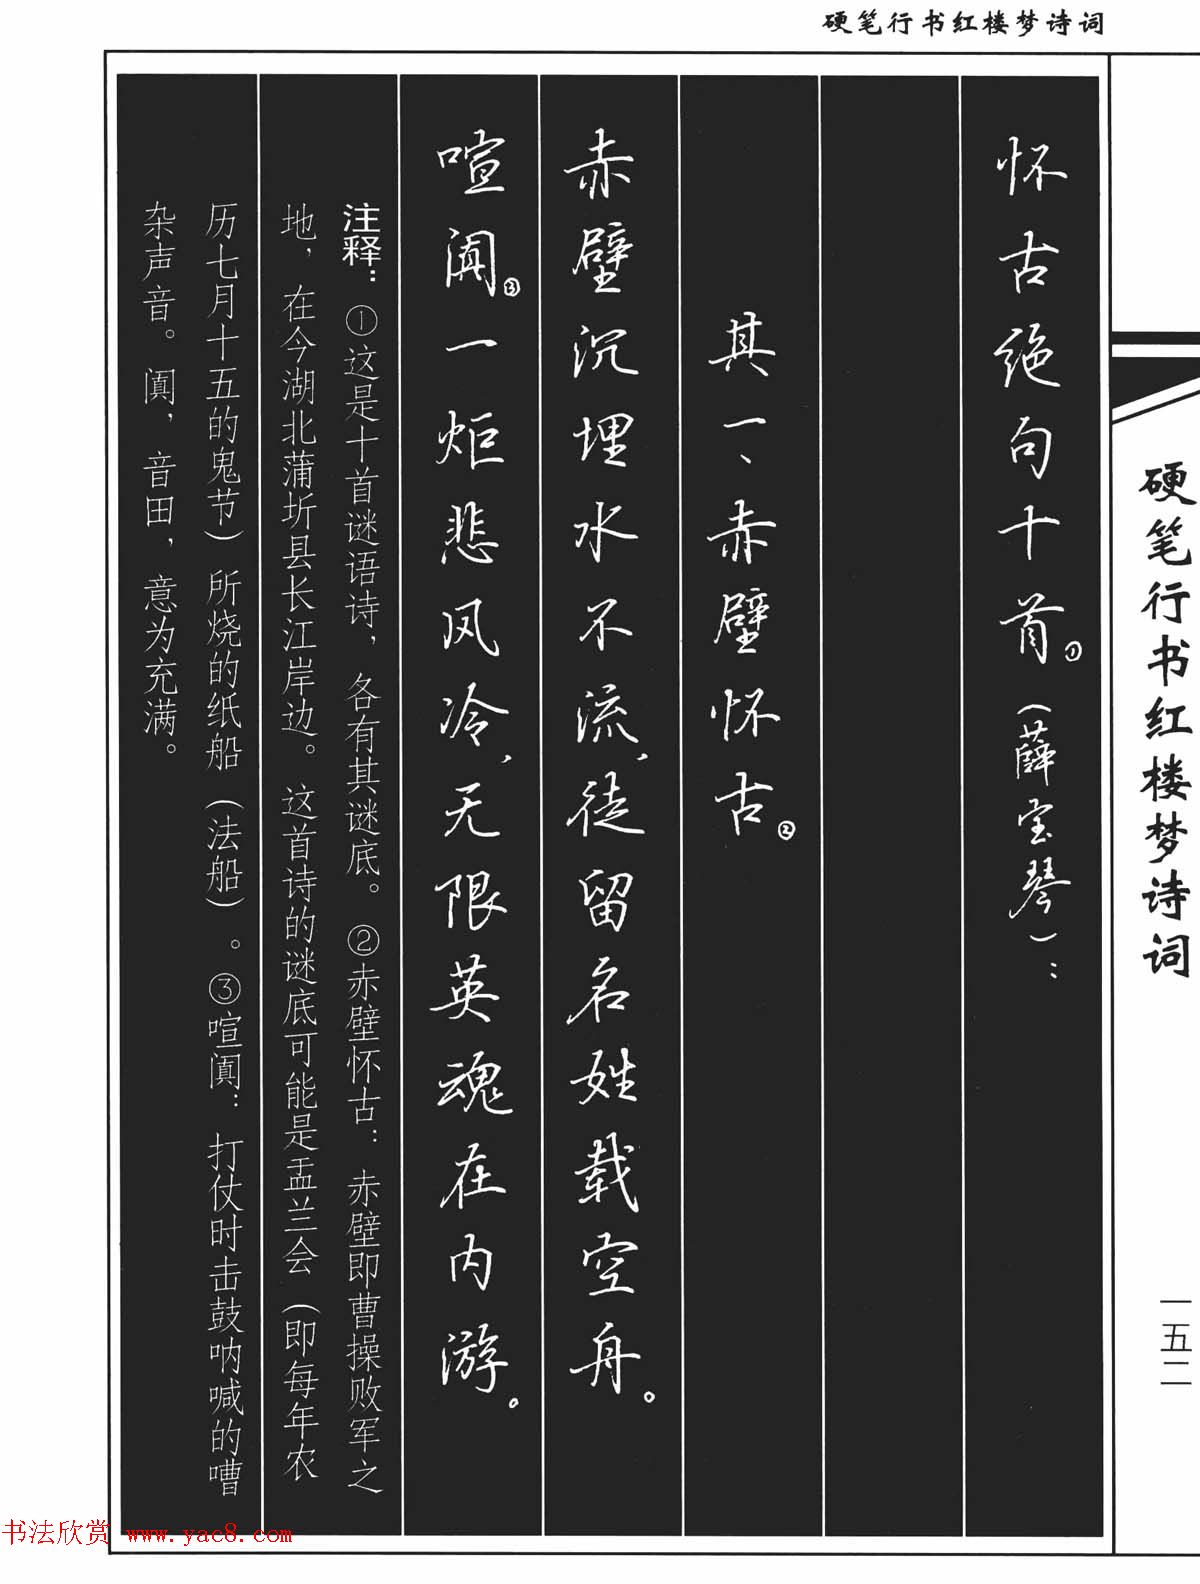 硬笔行书红楼梦诗词
怀古绝句十首①(薛宝琴)：
其一、赤壁怀古②
赤壁沉埋水不流，徒留名姓载空舟。
喧阗③一炬悲风冷，无限英魂在内游。
注释：①这是十首谜语诗，各有其谜底。②赤壁怀古：赤壁即曹操败军之
地，在今湖北蒲圻县长江岸边。这首诗的谜底可能是盂兰会（即每年农
历七月十五的鬼节）所烧的纸船（法船）。③喧阗：打仗时击鼓呐喊的嘈
杂声音。阗，音田，意为充满。
硬笔行书红楼梦诗词
一五二
书法欣赏 www.yac8.com